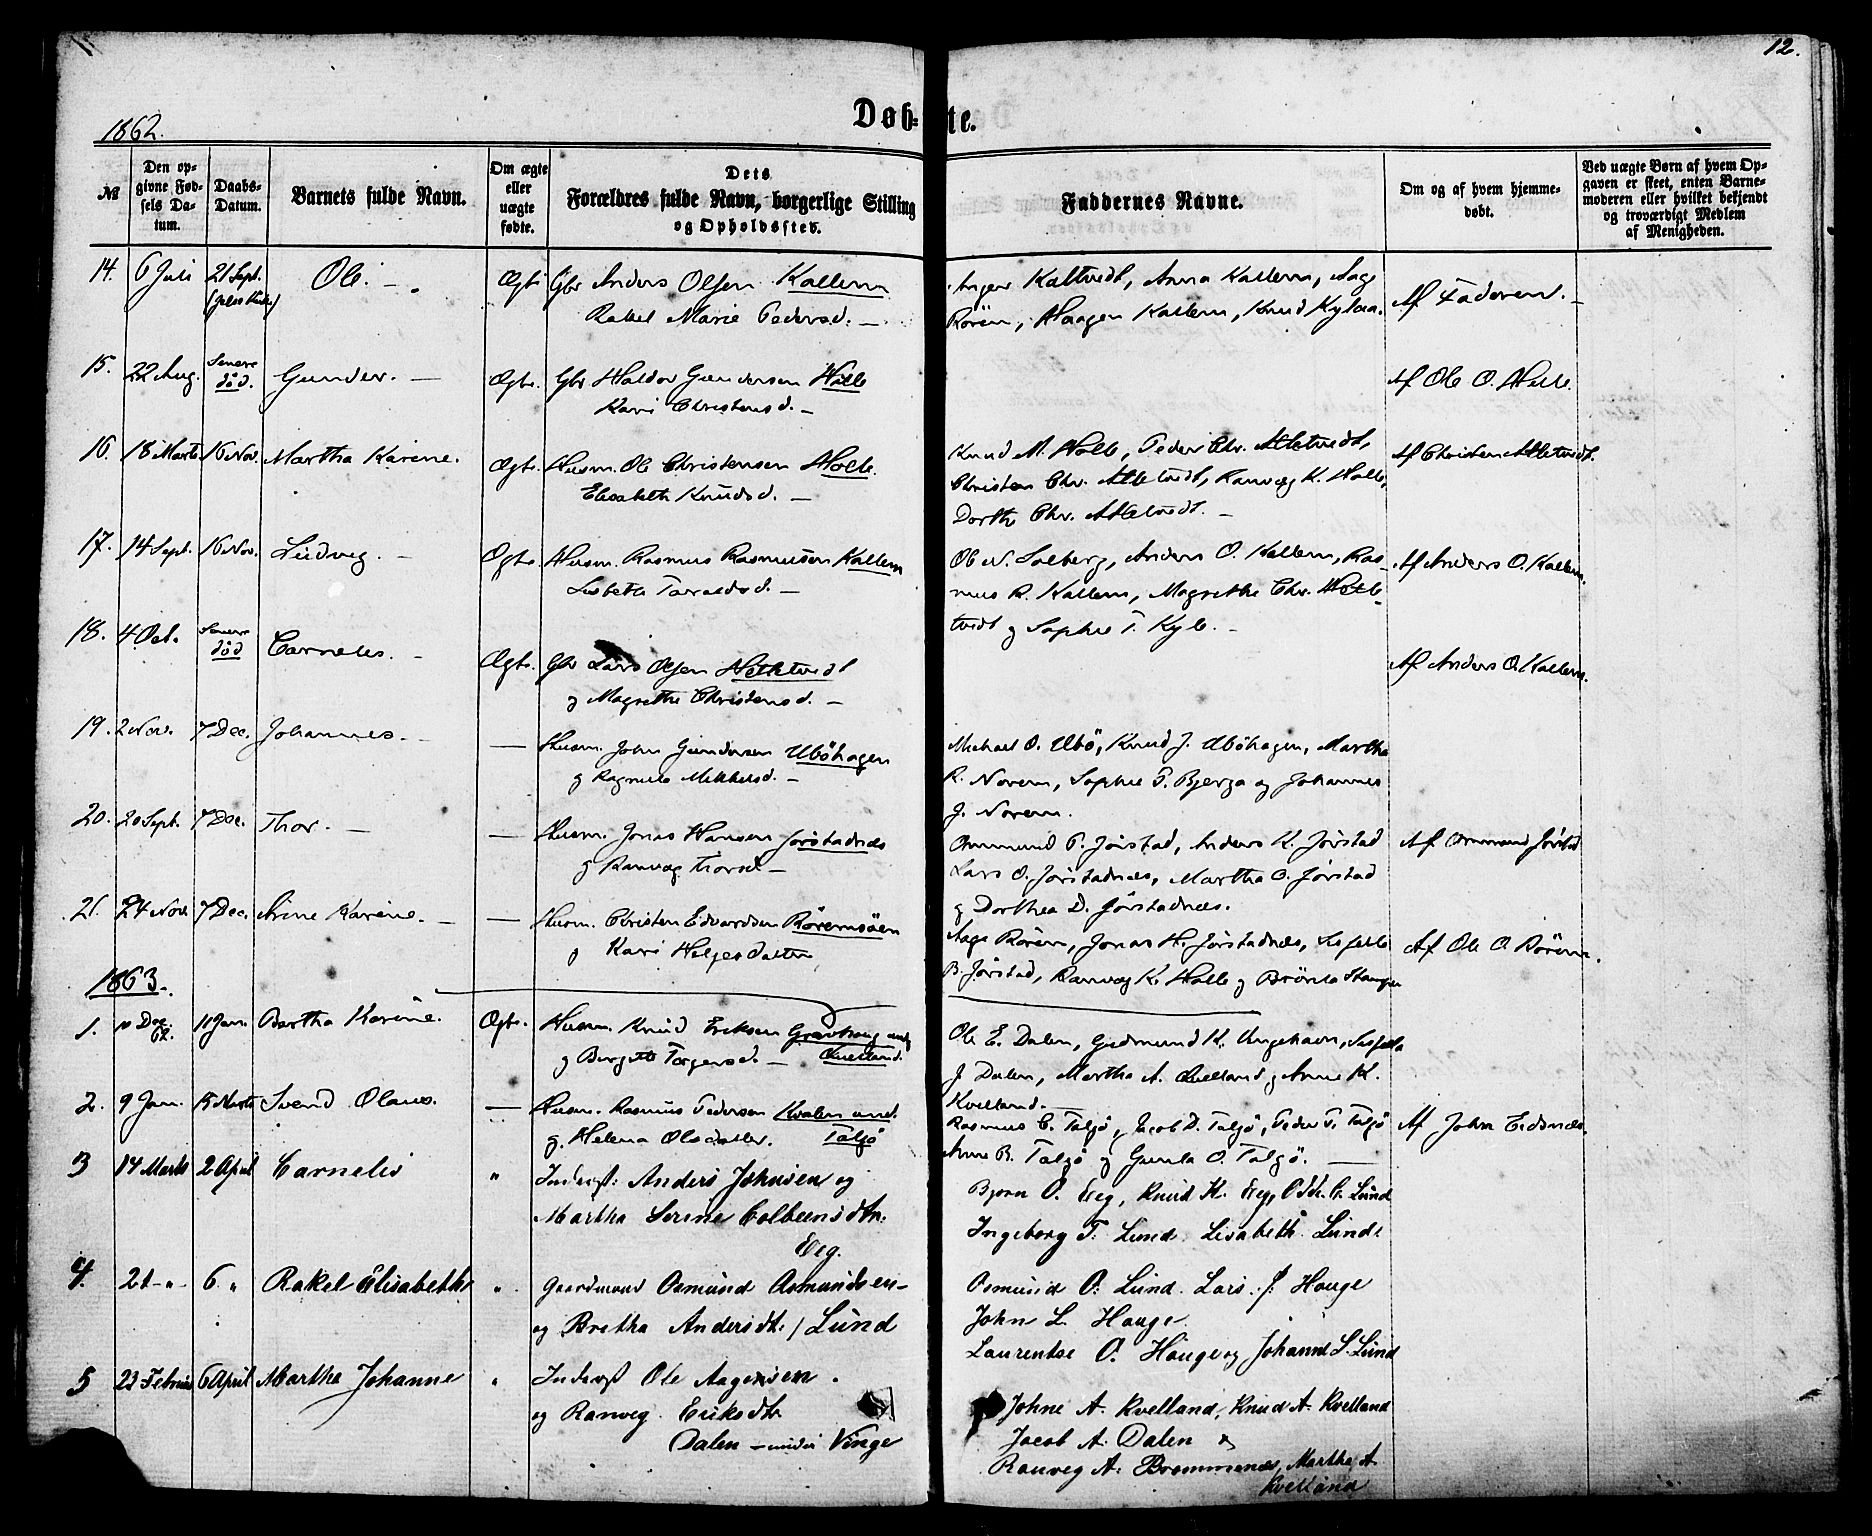 12.
1862.
Døb-te.
№
Den opgivne Fødsels Datum.
Daabs-Datum.
Barnets fulde Navn.
Om ægte eller uægte fødte.
Dets Forældres fulde Navn, borgerlige Stilling og Opholdssted.
Faddernes Navne.
Om og af hvem hjemmedøbt.
Ved uægte Børn af hvem Opgaven er skeet, enten Barnemoderen eller hvilket bekjendt og troværdigt Medlem af Menigheden.
14. 6 Juli 21 Sept. Ole. Ægte Gbr Anders Olsen Kallem
Rakel Marie Pedersd.
Kaltvedt, Anna Kallem, Aage
Rørem, Haagen Kallem, Knud
Af Faderen.
15. 22 Aug. død. Gunder. Ægte. Gbr Haldor Gundersen Halle
Kari Christensd.
Af Ole O. Halle.
16. 18 Marts 16 Nov. Martha Karine. Ægte. Husm. Ole Christensen Halle.
Elisabeth Knudsd.
Knud M. Halle, Peder Chr.
Christen Chr. Ranveg K. Halle,
Dorthe Chr.
Af Christen
17. 14 Sept. 16 Nov. Ludvig. Ægte Husm. Rasmus Rasmussen Kallem
Lisbeth
Ole N. Solberg, Anders O. Kallem, Ras-
mus R. Kallem, Magrethe Chr.
tvedt og Sophie T. Kyle.
Af Anders O. Kallem.
18. 4 Oct. død Cornelius. Ægte. Gbr Lars Olsen
og Magrethe Christensd.
Af Anders O. Kallem.
19. 2 Nov. 7 Dec. Johannes. — Husm. John Gundersen Ubøhagen
og Ragnele Mikkelsd.
Michael O. Ubø, Knud J. Ubøhagen, Martha
R. Norem, Sophie T. Bjerga og Johannes
J. Norem.
20. 20 Sept. 7 Dec. Thor. — Husm. Jonas Hansen Jørstadnæs
og Ranveg Thorsd.
Ommund P. Jørstad, Anders K. Jørstad
Lars O. Jørstadnæs, Martha O. Jørstad
og Dorthea D. Jørstadnæs.
Af Ommund Jørstad
21. 24 Nov. 7 Dec. Karine. — Husm. Christen Edvardsen
og Kari Helgesdatter
Aage Rørem, Jonas H. Jørstadnæs,
B. Jørstad, Ranveg K. Halle og
Af Ole O. Rørem.
1863.
1. Dec. 62. 11 Jan. Bertha Karine. Ægte. Husm. Knud Eriksen
og Birgitte Torgersd.
Ole E. Dalen, Gudmund K.
J. Dalen, Martha A. Kvelland og Anne K.
Kvelland.
2. 9 Jan. 15 Marts Svend Olaus. — Husm. Rasmus Pedersen Kvalen und.
og Helena Olsdatter. Talgø
Rasmus C. Talgø, Jacob D. Talgø, Peder T. Talgø
Anne R. Talgø og Gunla O. Talgø.
Af John Eidsnes.
3 14 Marts 2 April Cornelis " Inderst: Anders Johnsen og
Martha Serine Colbensdtr.
Eeg.
Bjørn O. Eeg, Knud K. Eeg, C. Lund
Ingeborg T: Lund. Lisabeth Lund.
4. 21 - " 6 " Rakel Elisabeth " Gaardmand Osmund Osmundsen
og Bretha Andersdtr. / Lund
Osmund O. Lund. Lars J. Hauge
John L. Hauge
Laurentse O. Hauge og Johanne S. Lund
5 23 Februar 6 April Martha Johanne " Inderst Ole Aagensen
og Ranveg Eriksdtr.
Dalen - under Vinge
Johne A. Kvelland, Knud A. Kvelland
Jacob A. Dalen
Ranveg A. Brommenes, Martha A
Kvelland